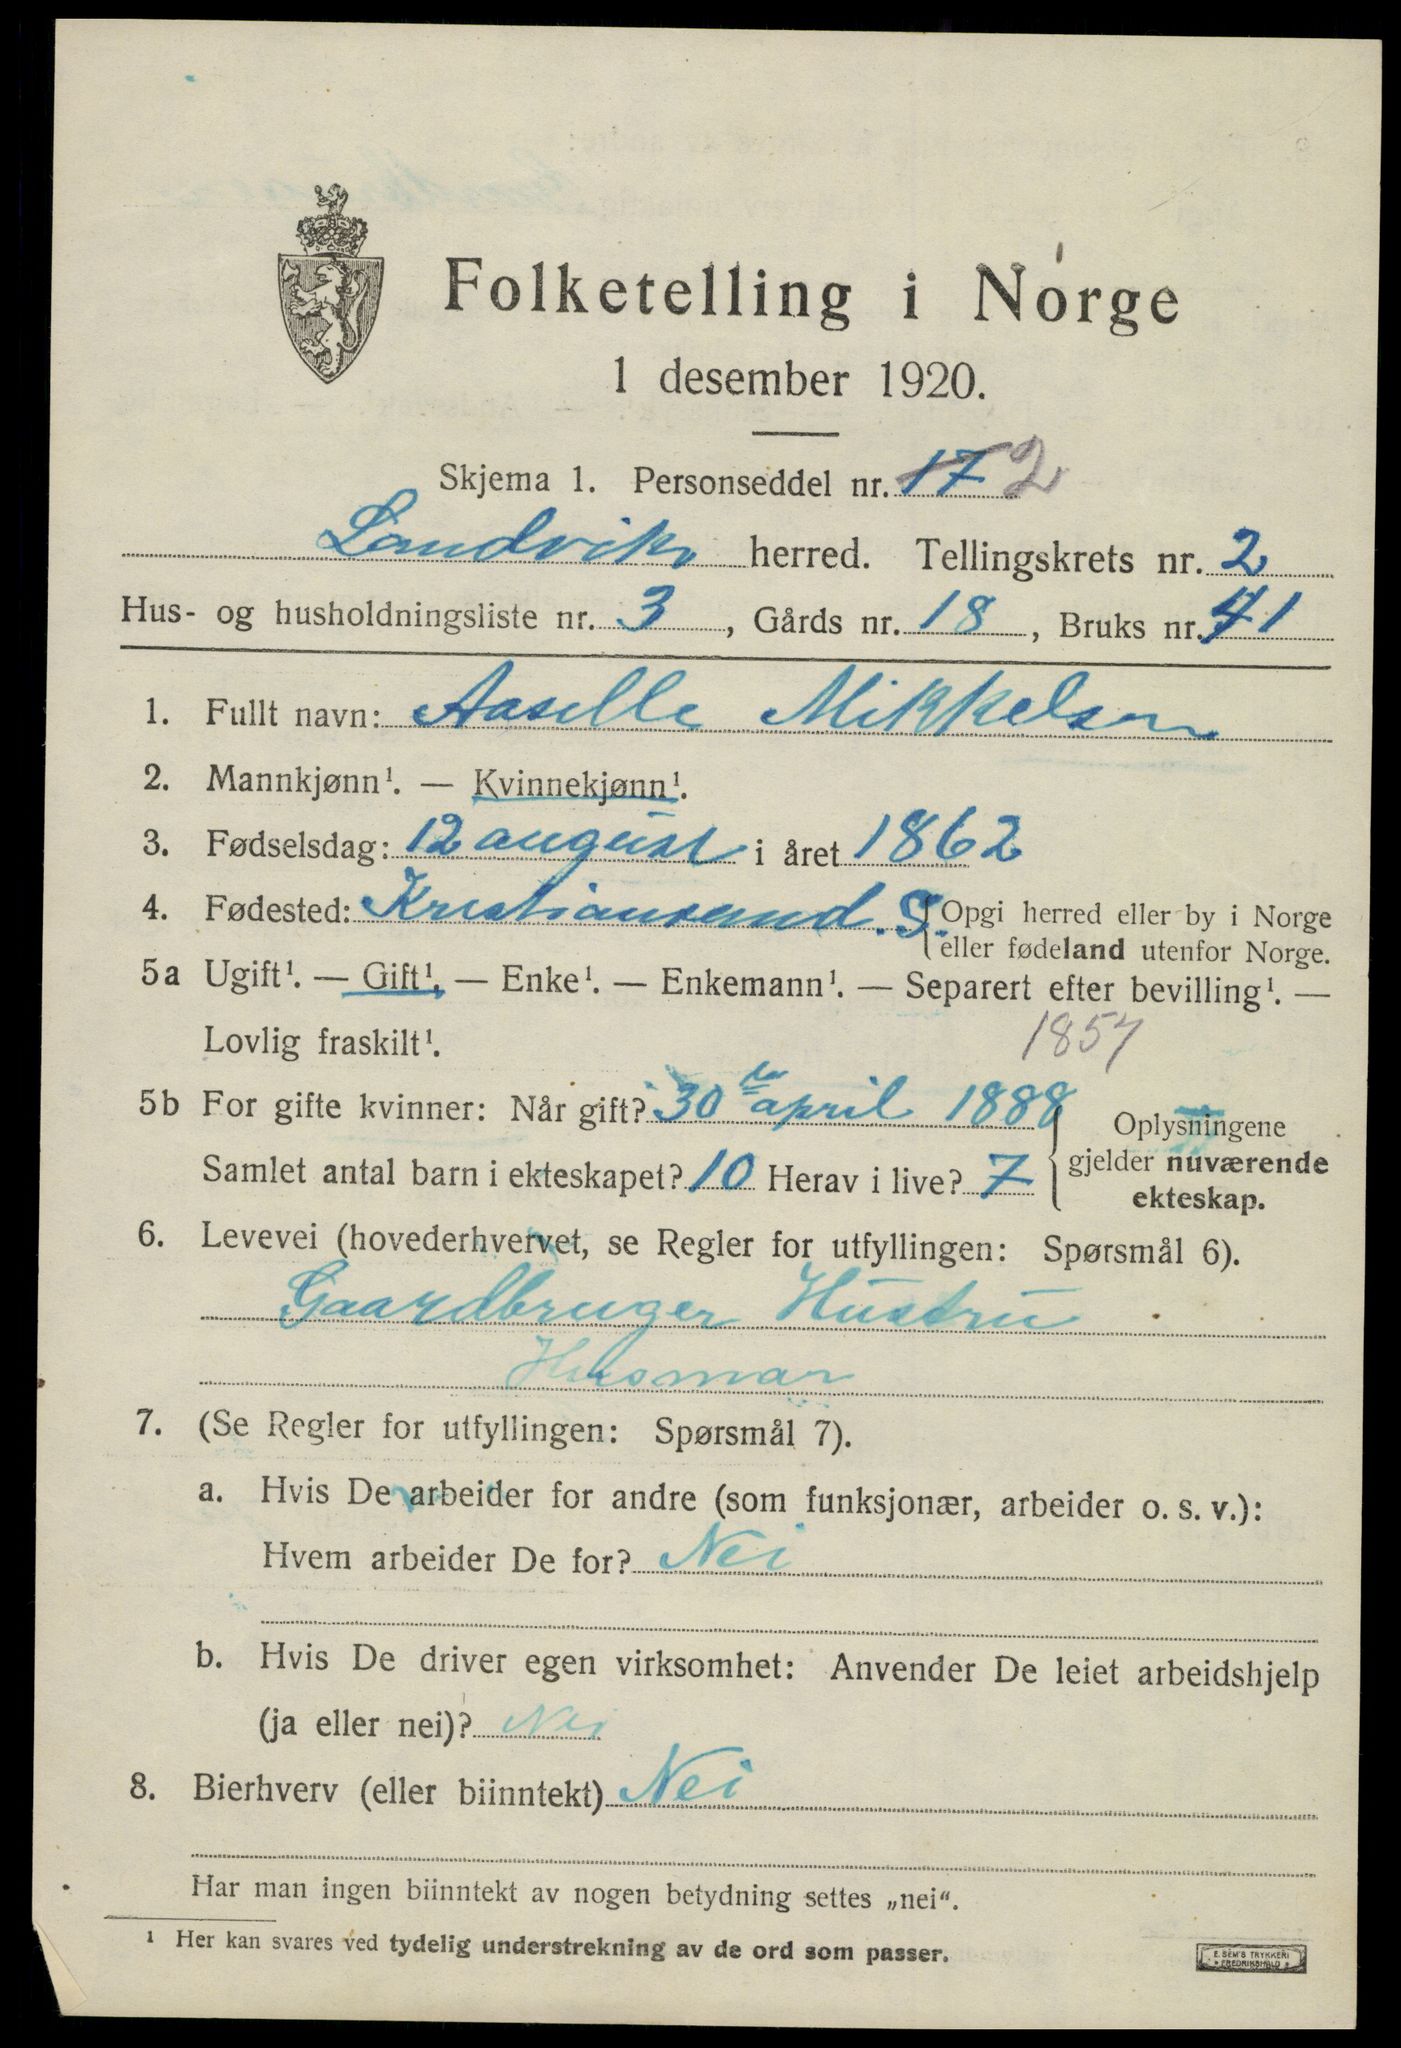 Folketelling i Norge
1 desember 1920.
Skjema 1. Personseddel nr. 17 2
Landvik herred. Tellingskrets nr. 2
Hus- og husholdningsliste nr. 3, Gårds nr. 18, Bruks nr. 41
1. Fullt navn: Aaselle Mikkelsen
2. Mannkjønn¹. — Kvinnekjønn¹.
3. Fødselsdag: 12 august i året 1862
4. Fødested: Kristiansand. S. Opgi herred eller by i Norge
eller fødeland utenfor Norge.
5a Ugift¹. — Gift¹. — Enke¹. — Enkemann¹. — Separert efter bevilling¹. —
Lovlig fraskilt¹. 1857
5b For gifte kvinner: Når gift? 30te april 1888 Oplysningene
Samlet antal barn i ekteskapet? 10 Herav i live? 7 gjelder nuværende
ekteskap.
6. Levevei (hovederhvervet, se Regler for utfyllingen: Spørsmål 6).
Gaardbruger Hustru
7. (Se Regler for utfyllingen: Spørsmål 7).
a. Hvis De arbeider for andre (som funksjonær, arbeider o. s. v.):
Hvem arbeider De for? Nei
b. Hvis De driver egen virksomhet: Anvender De leiet arbeidshjelp
(ja eller nei)? Nei
8. Bierhverv (eller biinntekt) Nei
Har man ingen biinntekt av nogen betydning settes „nei“.
¹ Her kan svares ved tydelig understrekning av de ord som passer.
E. SEM'S TRYKKERI
FREDRIKSHALD